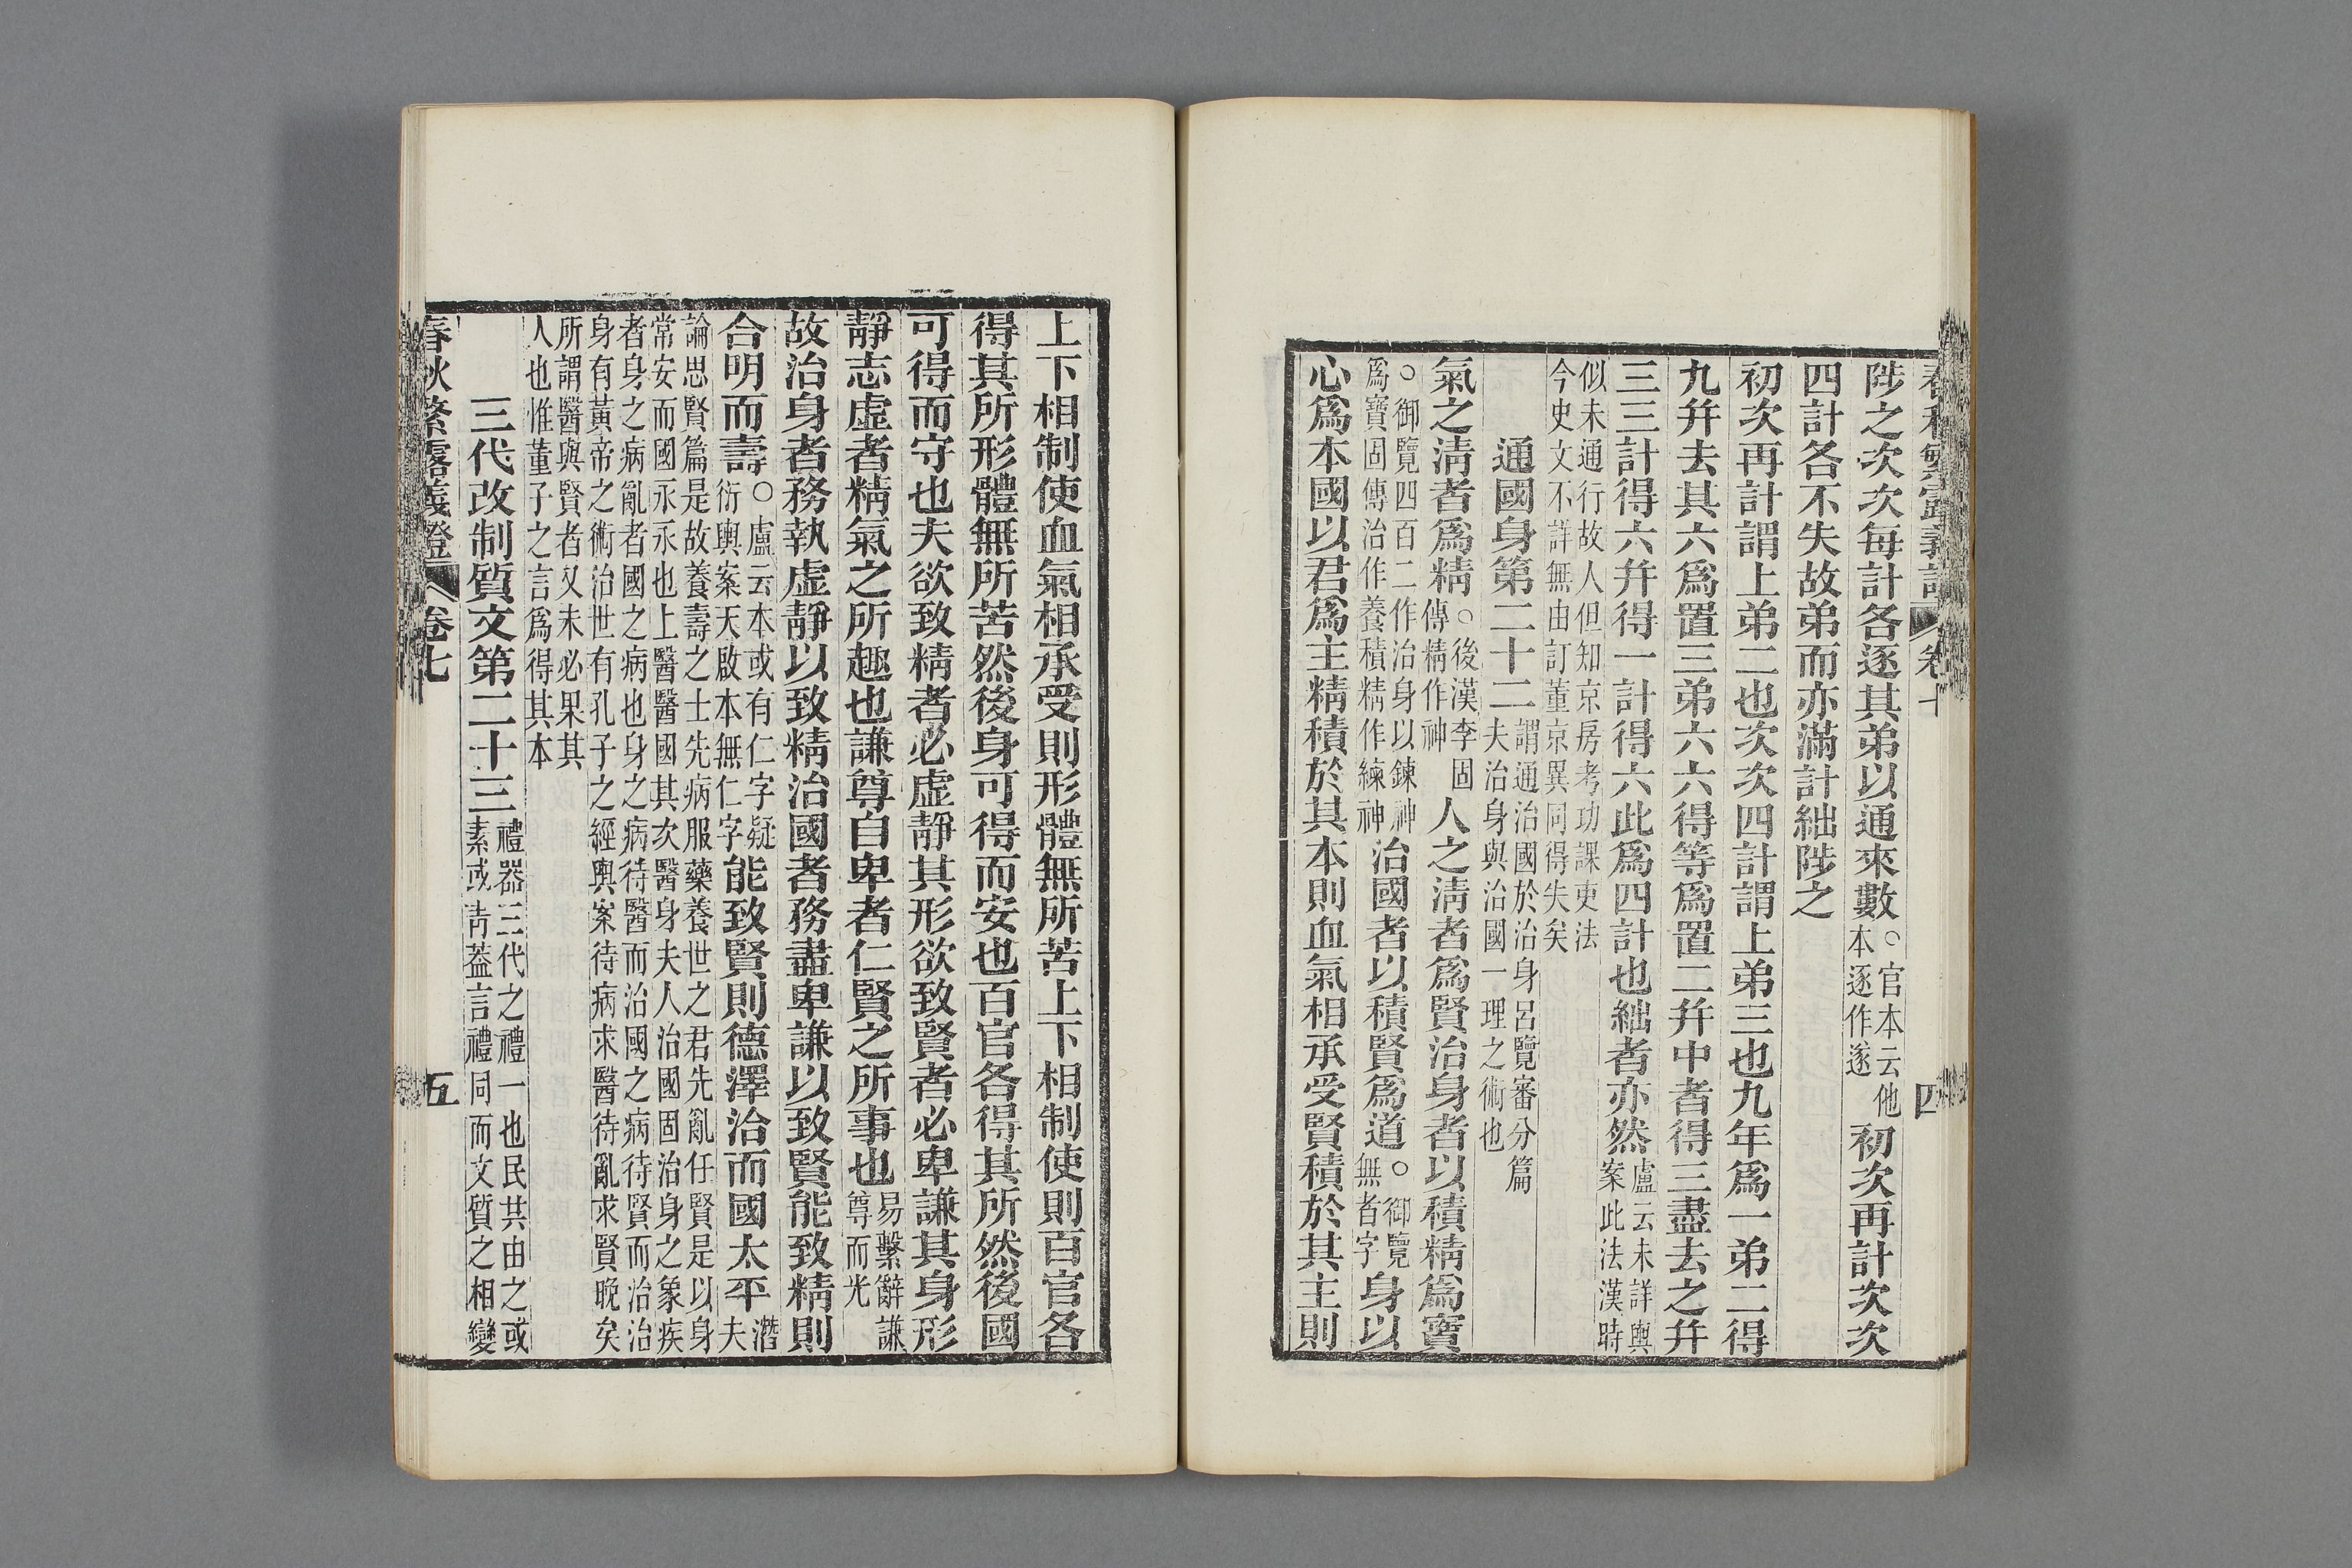 春秋繁露義證 卷七 四
陟之次次每計各逐其弟以通來數○官本云他本逐作遂初次再計次次
四計各不失故弟而亦滿計絀陟之
初次再計謂上弟二也次次四計謂上弟三也九年爲一弟二得
九幷去其六爲置三弟六六得等爲置二幷中者得三盡去之幷
三三計得六幷得一計得六此爲四計也絀者亦然盧云未詳輿案此法漢時
似未通行故人但知京房考功課吏法
今史文不詳無由訂董京異同得失矣
通國身第二十二謂通治國於治身呂覽審分篇夫治身與治國一理之術也
氣之淸者爲精○後漢李固傳精作神人之淸者爲賢治身者以積精爲寶
○御覽四百二作治身以鍊神爲寶固傳治作養積精作練神治國者以積賢爲道○御覽無者字身以
心爲本國以君爲主精積於其本則血氣相承受賢積於其主則
上下相制使血氣相承受則形體無所苦上下相制使則百官各
得其所形體無所苦然後身可得而安也百官各得其所然後國
可得而守也夫欲致精者必虛靜其形欲致賢者必卑謙其身形
靜志虛者精氣之所趣也謙尊自卑者仁賢之所事也易繫辭謙尊而光
故治身者務執虛靜以致精治國者務盡卑謙以致賢能致精則
合明而壽○盧云本或有仁字疑衍輿案天啟本無仁字能致賢則德澤洽而國太平潛夫
論思賢篇是故養壽之士先病服藥養世之君先亂任賢是以身
常安而國永永也上醫醫國其次醫身夫人治國固治身之象疾
者身之病亂者國之病也身之病待醫而治國之病待賢而治治
身有黃帝之術治世有孔子之經輿案待病求醫待亂求賢晚矣
所謂醫與賢者又未必果其
人也惟董子之言爲得其本
三代改制質文第二十三禮器三代之禮一也民共由之或素或靑葢言禮同而文質之相變
春秋繁露義證 卷七 五